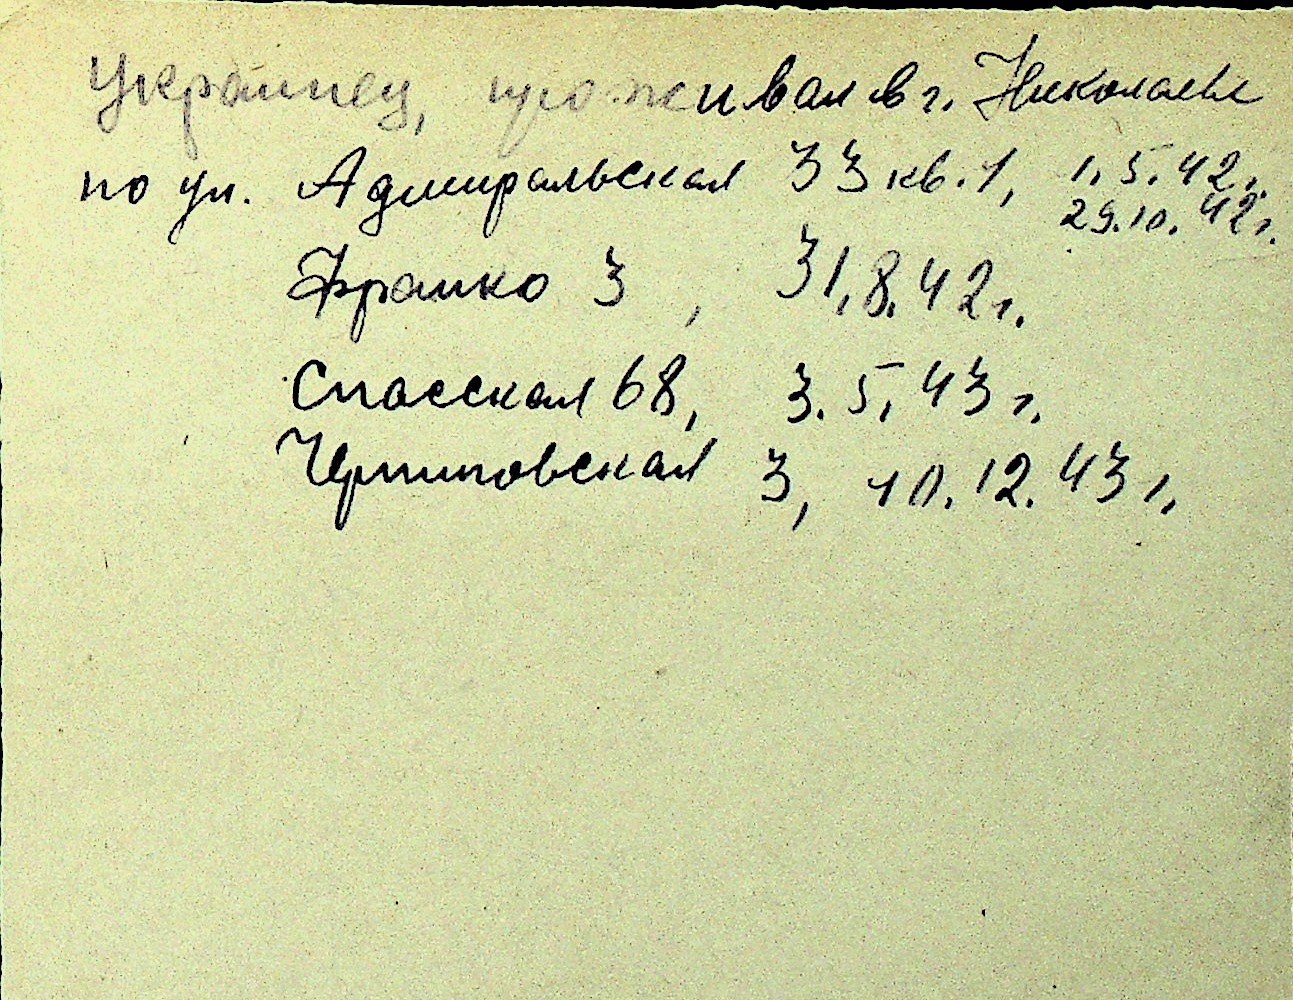 Украинец, проживал в г. Николаеве
по ул. Адмиральская 33 кв. 1, 1.5.42г.
29.10.42г.
Франко 3, 31.8.42г.
Спасская 68, 3.5.43г.
3, 10.12.43г.